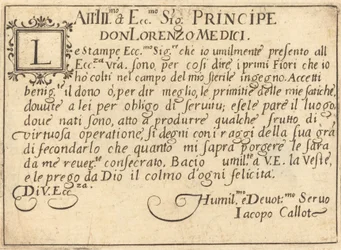 All Ill.mo & Ecc.mo Sig. PRINCIPE
DON LORENZO MEDICI.
Le Stampe Ecc.mo Sig.re che io umilmente presento all
Ecc.za vra. sono, per cosi dire, i primi Fiori che io
hò colti nel campo del mio sterile ingegno. Accetti
benig.te il dono ò, per dir meglio, le primitie delle mie fatiche,
douute a lei per obligo di seruitu; e se le pare il luogo,
doue nati sono, atto a produrre qualche frutto di
virtuosa operatione, si degni con i raggi della sua gra
di fecondarlo che quanto mi saprà porgere le sarà
da me reuer.te consecrato. Bacio umil.te a V.E. la Veste,
e le prego da Dio il colmo d'ogni felicità.
Di V. Ecc.za
Humil.mo e Deuot.mo Seruo
Iacopo Callot